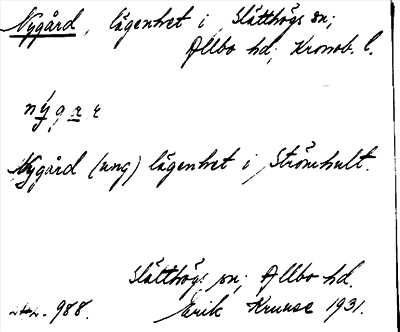 Nygård, lägenhet i Slätthögs sn;
Allbo hd; Kronob. l.
nygar
Nygård (ung) lägenhet i Strömhult.
Slätthögs sn; Allbo hd.
988. Erik Kruuse 1931.